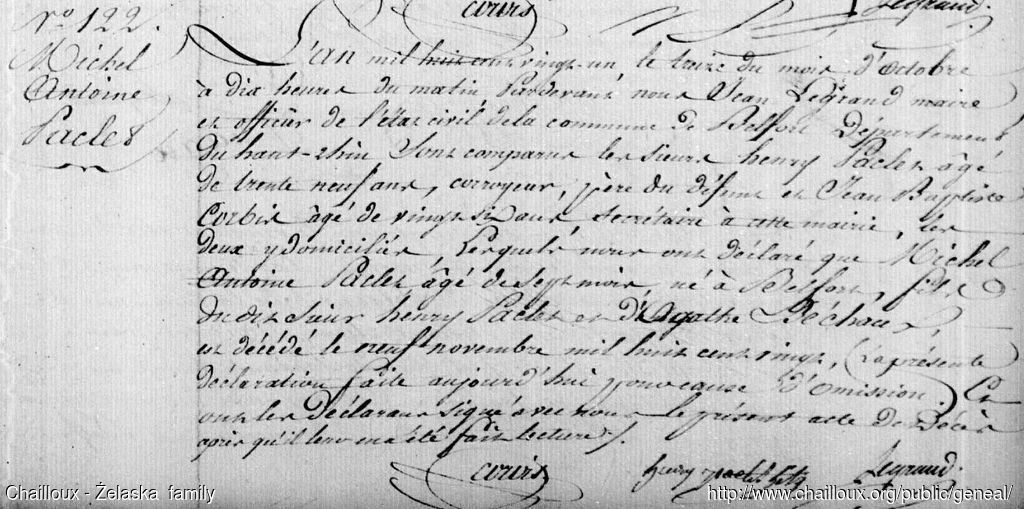 Corbis Legrand.
N.º 122.
Michel
Antoine
Paclet
L'an mil huit cent vingt-un, le treize du mois d'octobre
à dix heures du matin Pardevant nous Jean Legrand maire
et officier de l'état civil de la commune de Belfort Département
du haut-rhin Sont comparus les sieurs henry Paclet âgé
de trente neuf ans, corroyeur, père du défunt et Jean Baptiste
Corbis âgé de vingt six ans secrétaire à cette mairie, les
deux y domiciliés, Lesquels nous ont déclaré que Michel
Antoine Paclet âgé de sept mois, né à Belfort, fils
du dit sieur henry Paclet et d'Agathe Béchaux,
est décédé le neuf novembre mil huit cent vingt, (La présente
déclaration faite aujourd'hui pour cause d'omission.) Et
ont les déclarans signé avec nous le présent acte de Décès
après qu'il leur en a été fait lecture ./.
Corbis henry paclet Legrand.
Chailloux - Żelaska family
http://www.chailloux.org/public/geneal/